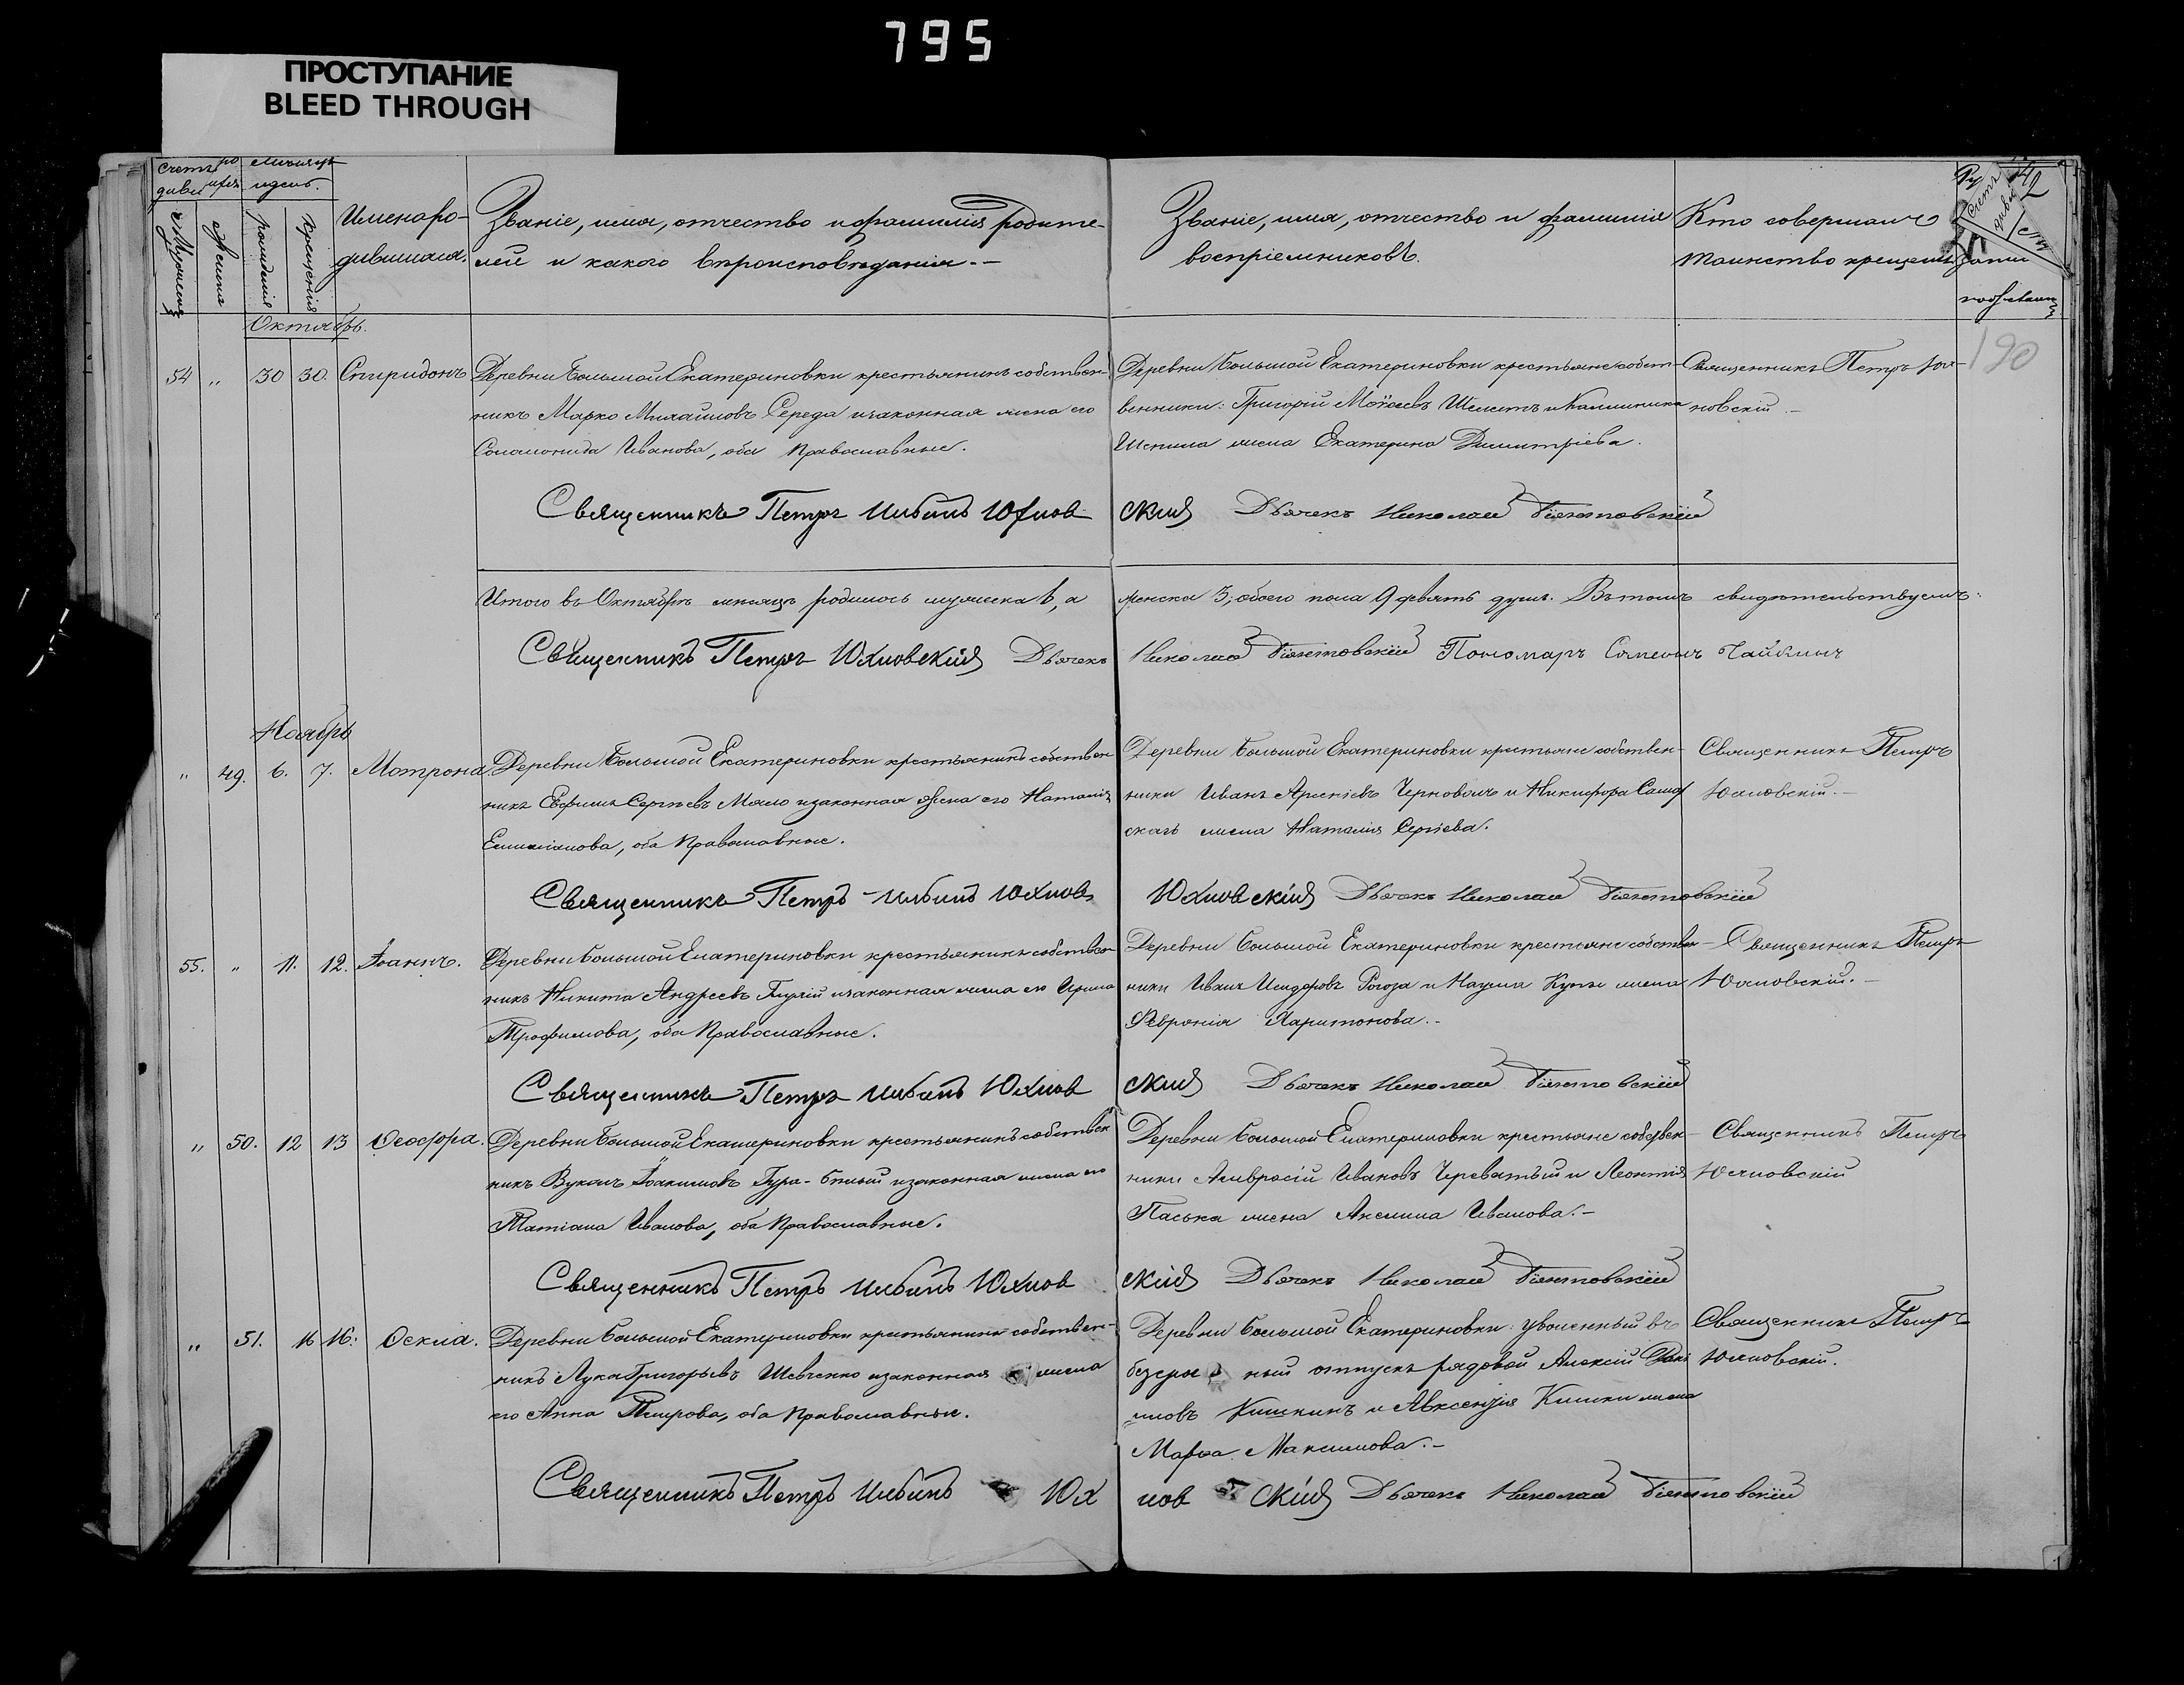 795
ПРОСТУПАНИЕ
BLEED THROUGH
Счетъ ро
дивших
мѣсяцъ
и день.
Мужеска
Женска
рожденія
крещенія
Имена ро-
дившихся.
Званіе, имя, отчество и фамилия родите-
лей и какого вѣроисповѣданія.-
Званіе, имя, отчество и фамилія
воспріемниковъ.
Кто совершалъ
таинство крещенія
Октябрь.
54 " 30 30. Спиридонъ
Деревни Большой Екатериновки крестьянинъ собствен-
никъ Марко Михаиловъ Середа и законная жена его
Соломонида Иванова, оба православные.
Деревни Большой Екатериновки крестьяне собст-
венники: Григорій Моѵсеевъ Шелестъ и Калиника
жена Екатерина Димитріева.
Священникъ Петръ Юх-
новскій.-
190
Священникъ Петръ Юхнов
ский Дьячекъ Николай
Итого въ Октябрѣ мѣсяцѣ родилось мужеска 6, а
женска 3, обоего пола 9 девять душъ. Въ томъ свидѣтельствуемъ:
Священникъ Петръ Юхновскій Дьячекъ
Николай Пономарь
Ноябрь
" 49. 6. 7. Мотрона
Деревни Большой Екатериновки крестьянинъ собствен
никъ Ефимъ Сергѣевъ Мало и законная жена его Наталія
Емиліанова, оба православные.
Деревни Большой Екатериновки крестьяне собствен-
ники Иванъ Арсеніевъ Черноволъ и Никифора
жена Наталия Сергѣева.
Священникъ Петръ
Юхновскій.-
Священникъ Петръ Юхнов
Юхновскій Дьячекъ Николай
55. " 11. 12. Іоаннъ.
Деревни Большой Екатериновки крестьянинъ собствен
никъ Никита Андреевъ и законная жена его Ирина
Трофимова, оба православные.
Деревни Большой Екатериновки крестьяне собствен-
ники Иванъ Исидоровъ Рогоза и Наума жена
Февронія Харитонова.-
Священникъ Петръ
Юхновскій.-
Священникъ Петръ Юхнов
ский Дьячекъ Николай
" 50. 12 13
Деревни Большой Екатериновки крестьянинъ собствен
никъ Вуколъ Іоакимовъ Гура-Бѣлый и законная жена его
Татіана Иванова, оба православные.
Деревни Большой Екатериновки крестьяне собствен-
ники Амвросій Ивановъ Череватый и Леонтія
Паська жена Акилина Иванова.-
Священникъ Петръ
Юхновскій
Священникъ Петръ Юхнов
скій Дьячекъ Николай
" 51. 16 16.
Деревни Большой Екатериновки крестьянинъ собствен-
никъ Лука Григорьевъ Шевченко и законная жена
его Анна Петрова, оба православные.
Деревни Большой Екатериновки: уволенный въ
безсроч ный отпускъ рядовой Алексій
мовъ Кишкинъ и Авксентія Кишки жена
Марѳа Максимова.-
Священникъ Петръ
Юхновскій.
Священникъ Петръ Юх
нов скій Дьячекъ Николай